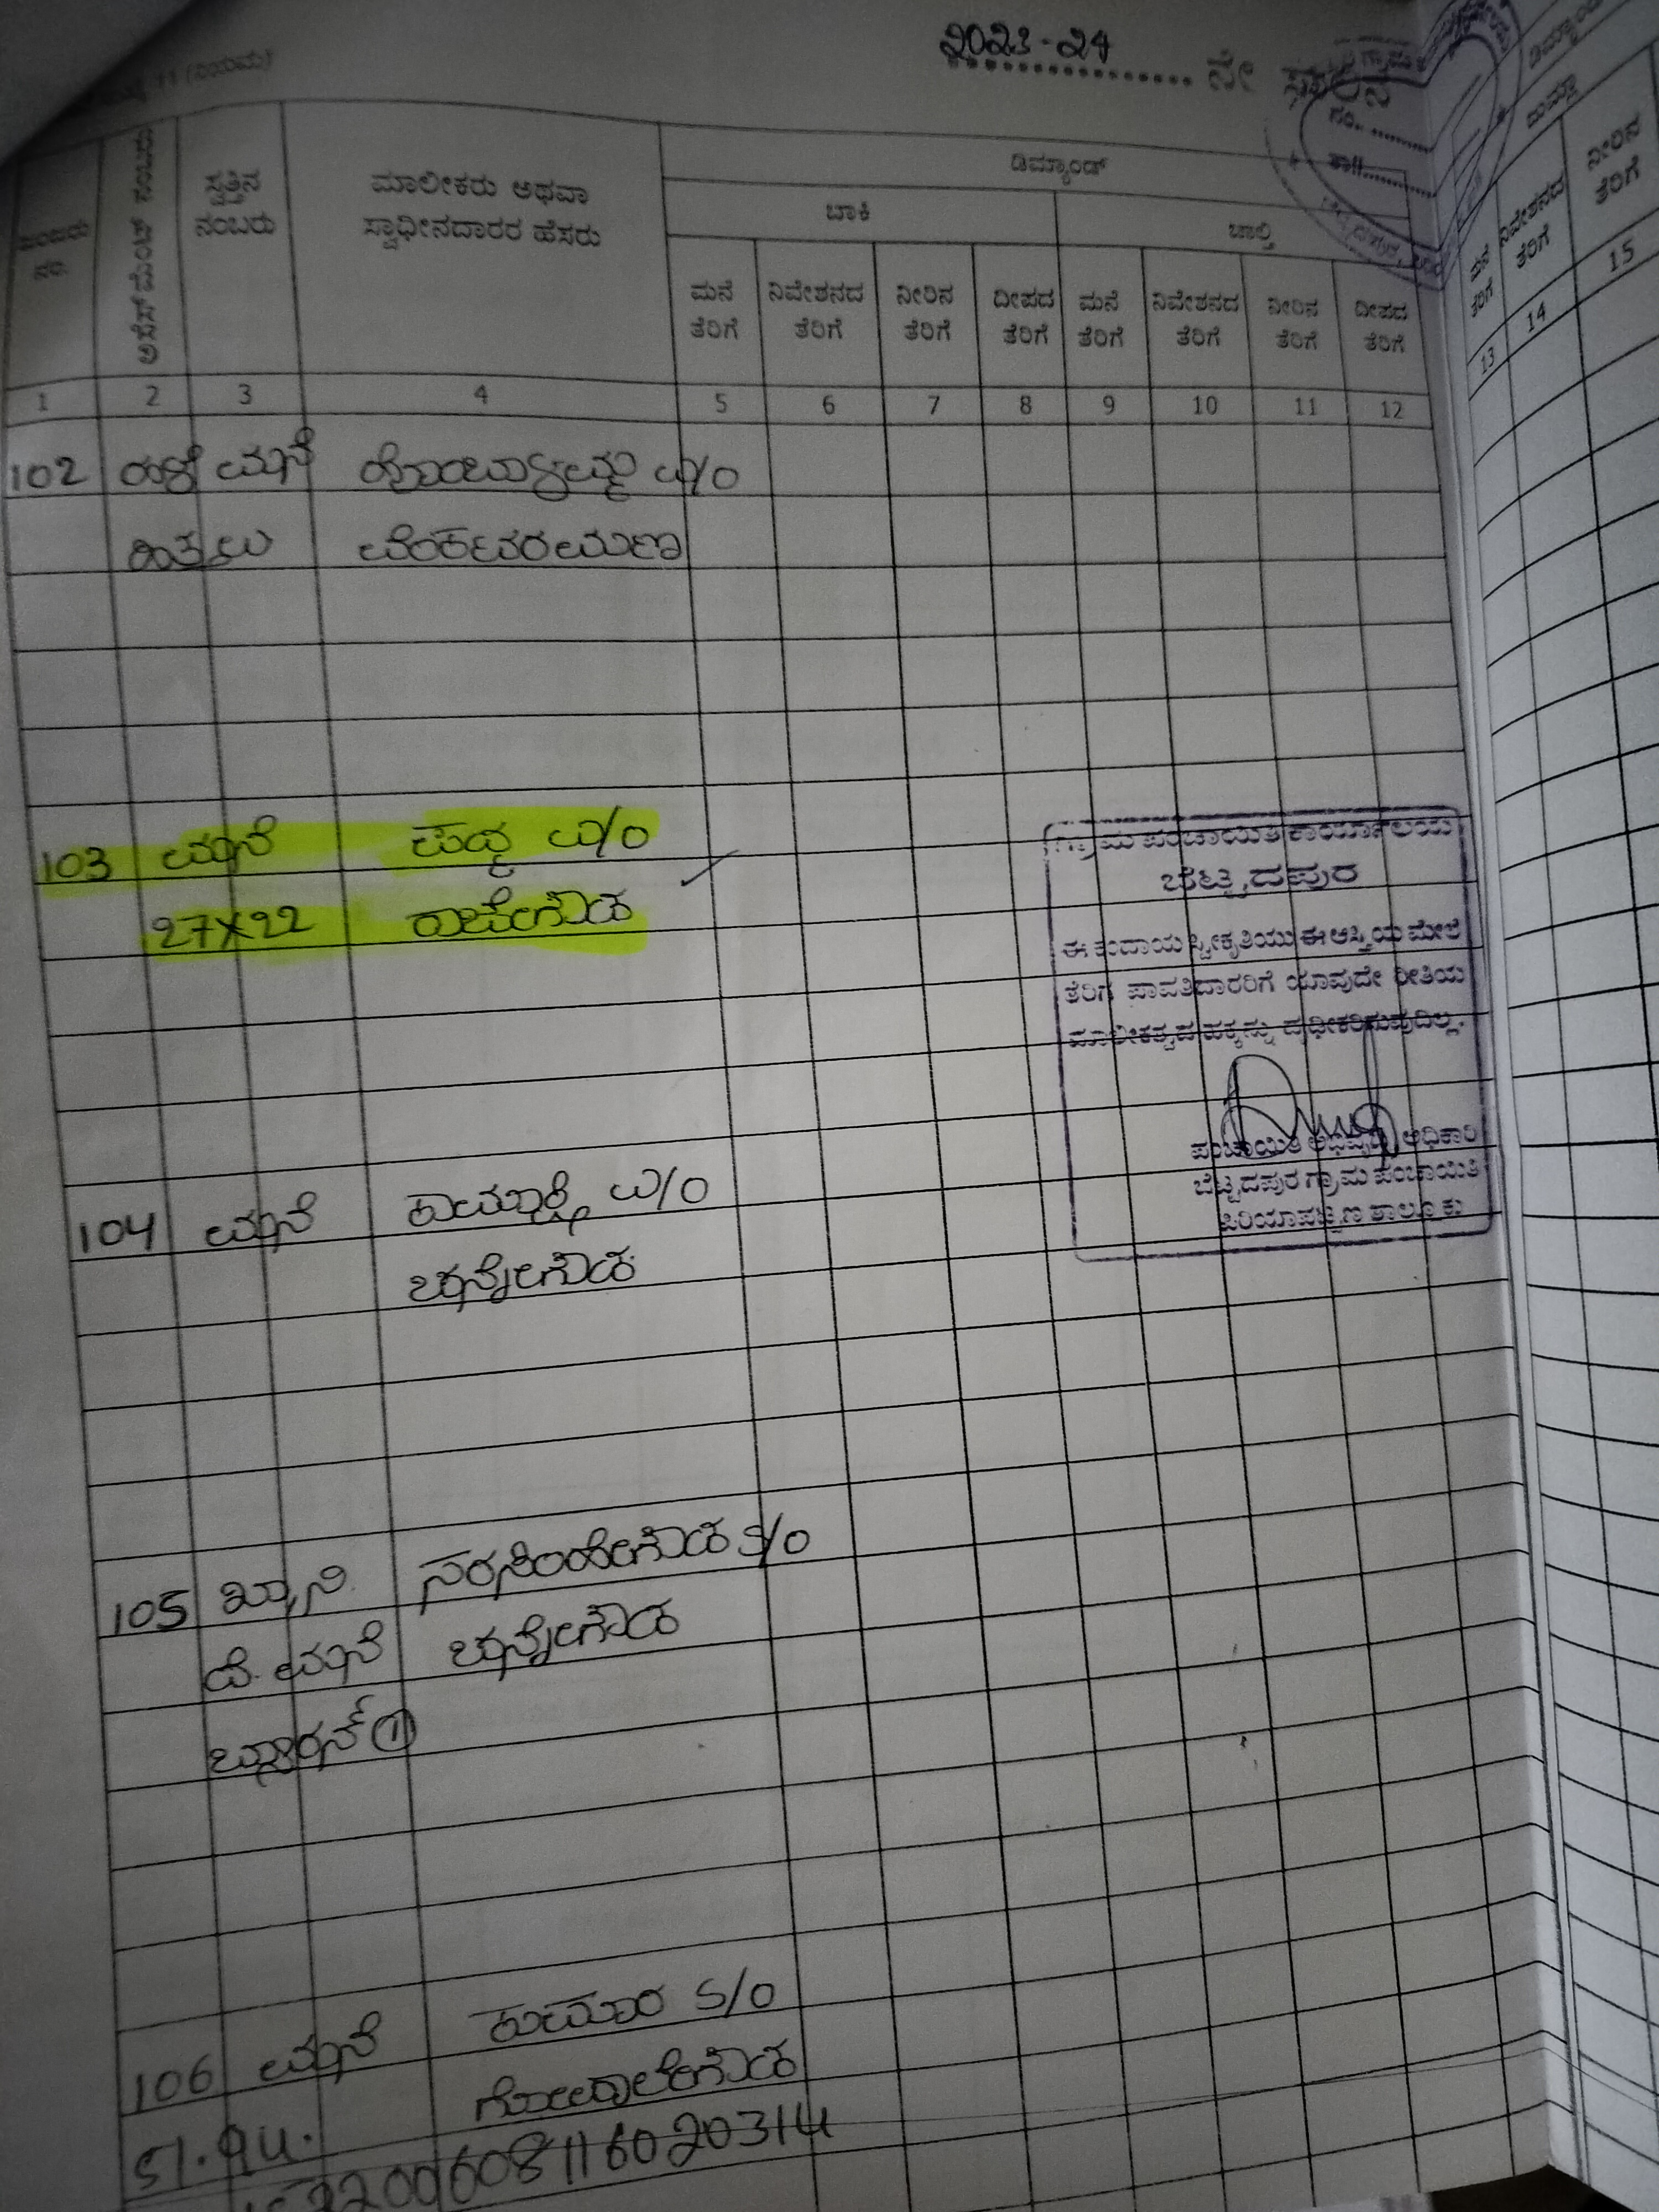 11 (ನಿಯಮ)
2023-24 ನೇ ಸಾಲಿನ
ಡಿಮ್ಯಾಂಡ್
ಬಾಕಿ ಚಾಲ್ತಿ
ನಂಬರು ಅಸೆಸ್‌ಮೆಂಟ್ ನಂಬರು ಸ್ವತ್ತಿನ ನಂಬರು ಮಾಲೀಕರು ಅಥವಾ
ಸ್ವಾಧೀನದಾರರ ಹೆಸರು
ಮನೆ ನಿವೇಶನದ ನೀರಿನ ದೀಪದ ಮನೆ ನಿವೇಶನದ ನೀರಿನ ದೀಪದ
ತೆರಿಗೆ ತೆರಿಗೆ ತೆರಿಗೆ ತೆರಿಗೆ ತೆರಿಗೆ ತೆರಿಗೆ ತೆರಿಗೆ ತೆರಿಗೆ
ಮನೆ ತೆರಿಗೆ ನಿವೇಶನದ ತೆರಿಗೆ ನೀರಿನ ತೆರಿಗೆ
1 2 3 4 5 6 7 8 9 10 11 12 13 14 15
102 ಹಳೆ ಮನೆ W/O
ಹಿತ್ತಲು ವೆಂಕಟರಮಣ
103 ಮನೆ ಪದ್ಮ W/O
27X22 ರಾಜೇಗೌಡ
ಗ್ರಾಮ ಪಂಚಾಯಿತಿ ಕಾರ್ಯಾಲಯ
ಬೆಟ್ಟದಪುರ
ಈ ಕಂದಾಯ ಸ್ವೀಕೃತಿಯು ಈ ಆಸ್ತಿಯ ಮೇಲೆ
ತೆರಿಗೆ ಪಾವತಿದಾರರಿಗೆ ಯಾವುದೇ ರೀತಿಯ
ಮಾಲೀಕತ್ವದ ಹಕ್ಕನ್ನು ದೃಢೀಕರಿಸುವುದಿಲ್ಲ.
ಪಂಚಾಯಿತಿ ಅಭಿವೃದ್ಧಿ ಅಧಿಕಾರಿ
ಬೆಟ್ಟದಪುರ ಗ್ರಾಮ ಪಂಚಾಯಿತಿ
ಪಿರಿಯಾಪಟ್ಟಣ ತಾಲ್ಲೂಕು
104 ಮನೆ ಕಾಮಾಕ್ಷಿ W/O
ಚನ್ನೇಗೌಡ
105 ಖಾನಿ. ನರಸಿಂಹೇಗೌಡ S/O
ವೆ. ಮನೆ ಚನ್ನೇಗೌಡ
1
106 ಮನೆ ಕುಮಾರ S/O
ಗೋಪಾಲೇಗೌಡ
51.94.
2200608116020314